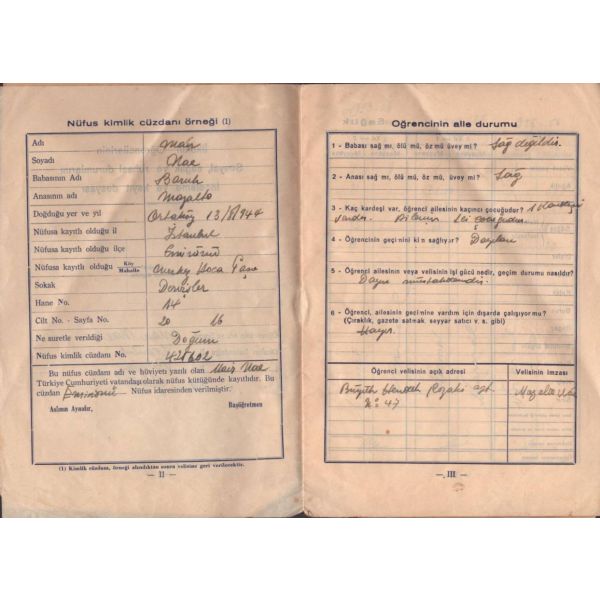 Nüfus kimlik cüzdanı örneği (1)
Adı Mair
Soyadı Nae
Babasının Adı Baruh
Anasının adı Mazalto
Doğduğu yer ve yıl Ortaköy 13/8/944
Nüfusa kayıtlı olduğu il İstanbul
Nüfusa kayıtlı olduğu ilçe Eminönü
Nüfusa kayıtlı olduğu Köy Mahalle Hoca
Sokak Dervişler
Hane No. 14
Cilt No. - Sayfa No. 20 16
Ne suretle verildiği Doğum
Nüfus kimlik cüzdanı No.
Bu nüfus cüzdanı adı ve hüviyeti yazılı olan Mair Nae
Türkiye Cumhuriyeti vatandaşı olarak nüfus kütüğünde kayıtlıdır. Bu
cüzdan Eminönü Nüfus idaresinden verilmiştir.
Aslının Aynıdır, Başöğretmen
(1) Kimlik cüzdanı, örneği alındıktan sonra velisine geri verilecektir.
— II —
Öğrencinin aile durumu
1 - Babası sağ mı, ölü mü, öz mü üvey mi? Sağ değildir.
2 - Anası sağ mı, ölü mü, öz mü, üvey mi? Sağ
3 - Kaç kardeşi var, öğrenci ailesinin kaçıncı çocuğudur? 1 kardeşi
vardır. Ailenin çocuğudur.
4 - Öğrencinin geçinini kim sağlıyor? Dayıları
5 - Öğrenci ailesinin veya velisinin işi gücü nedir, geçim durumu nasıldır?
Dayısı müstahdemdir.
6 - Öğrenci, ailesinin geçimine yardım için dışarda çalışıyormu?
(Çıraklık, gazete satmak seyyar satıcı v. s. gibi)
Hayır.
Öğrenci velisinin açık adresi Velisinin imzası
apt. Mazalto
No: 47
— III —